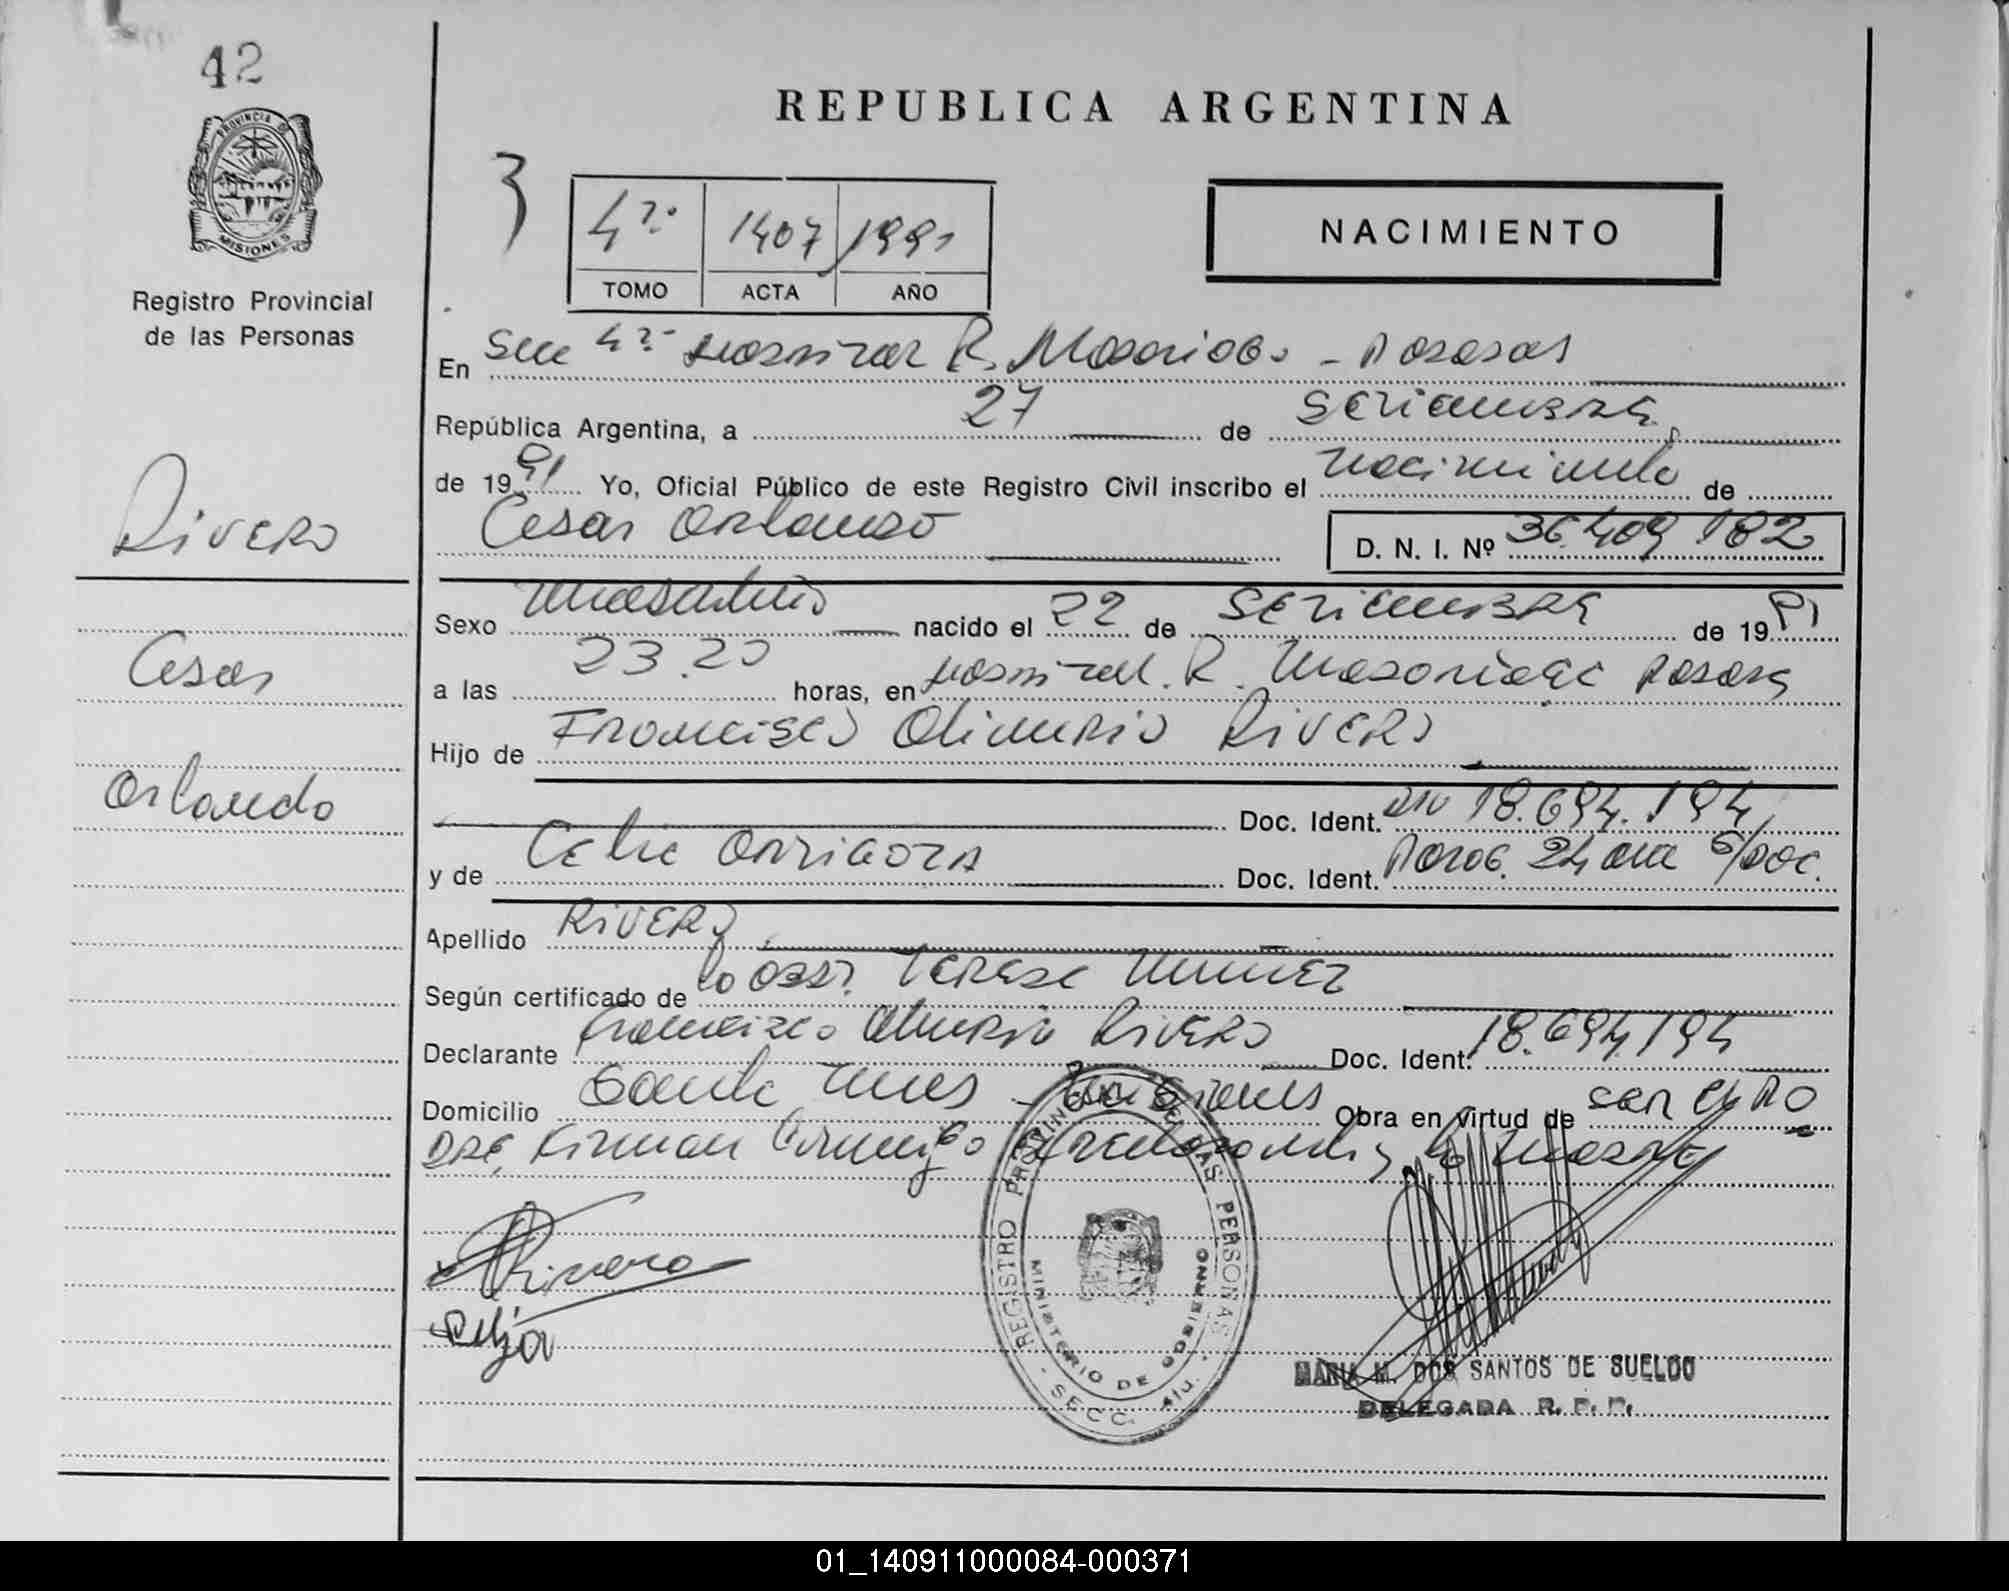 42
PROVINCIA DE
MISIONES
Registro Provincial
de las Personas
REPUBLICA ARGENTINA
3
4º 1407 1991
TOMO ACTA AÑO
NACIMIENTO
En Secc 4º Hospital R. Madariaga - Posadas
República Argentina, a 27 de Setiembre
de 1991 Yo, Oficial Público de este Registro Civil inscribo el nacimiento de
Cesar Orlando
D. N. I. Nº 36.409.182
Rivero
Cesar
Orlando
Sexo Masculino nacido el 22 de Setiembre de 1991
a las 23.20 horas, en Hospital R. Madariaga Posadas
Hijo de Francisco Olimpio Rivero
Doc. Ident. DNI 18.694.194
y de Celia Doc. Ident. 24 S/Doc.
Apellido Rivero
Según certificado de la Obst. Teresa
Declarante Francisco Olimpio Rivero Doc. Ident. 18.694.194
Domicilio Santa Ines - Misiones Obra en virtud de ser el PADRE, firman conmigo la madre
Rivero
Celia
REGISTRO PROVINCIAL DE LAS PERSONAS
MINISTERIO DE GOBIERNO
SECC. 4ta.
MARIA M. DOS SANTOS DE SUELDO
DELEGADA R. P. P.
01_140911000084-000371